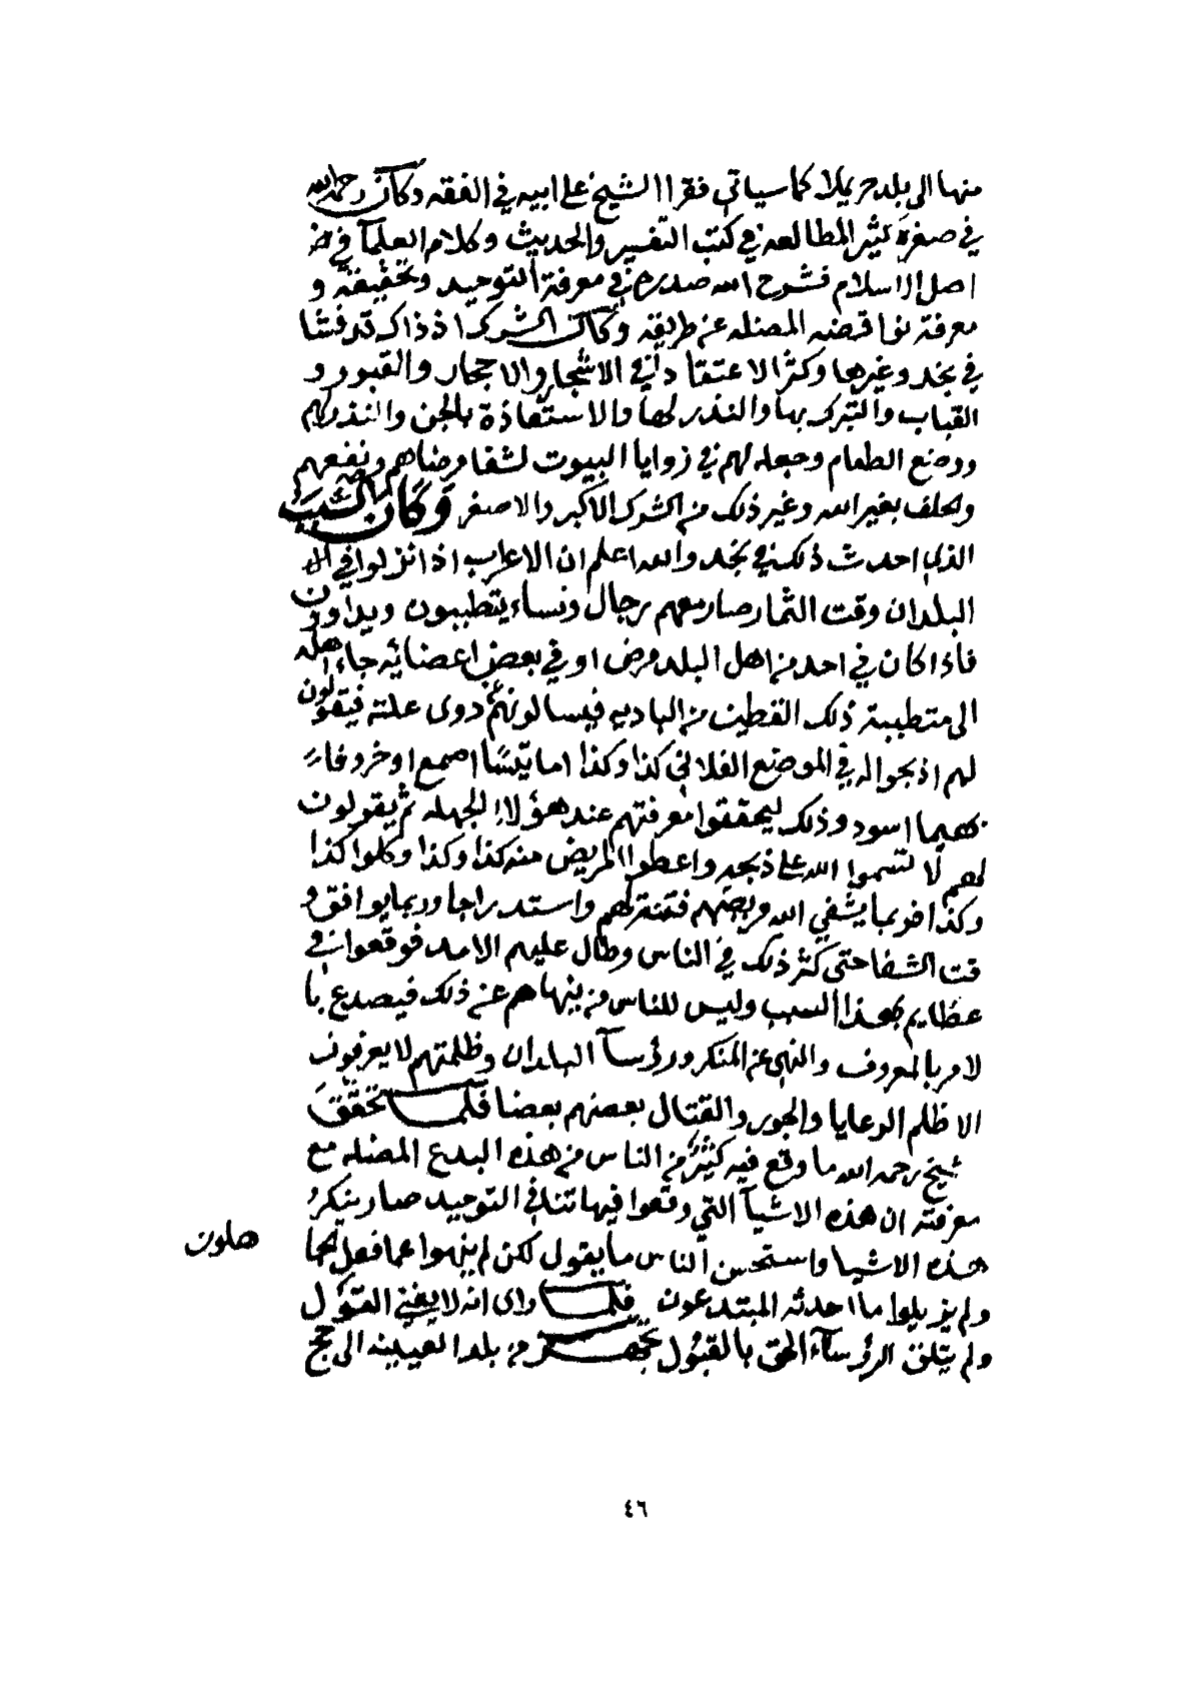 منها الى بلد حريملا كما سياتي فقرا الشيخ على ابيه في الفقه وكان رحمه الله
في صغره كثير المطالعه في كتب التفسير والحديث وكلام العلمآ في
اصل الاسلام فشرح الله صدره في معرفة التوحيد وتحقيقه و
معرفة نواقضه المضله عن طريقه وكان الشرك اذ ذاك قد فشا
في نجد وغيرها وكثر الاعتقاد في الاشجار والاحجار والقبور و
القباب والتبرك بها والنذر لها والاستعاذة بالجن والنذر لهم
ووضع الطعام وجعله لهم في زوايا البيوت لشفا مرضاهم ونفعهم
والحلف بغير الله وغير ذلك من الشرك الاكبر والاصغر وكان السبب
الذي احدث ذلك في نجد والله اعلم ان الاعراب اذا نزلوا في
البلدان وقت الثمار صار معهم رجال ونساء يتطببون ويداوون
فاذا كان في احد من اهل البلد مرض او في بعض اعضائه جاء اهله
الى متطببة ذلك القطين من الباديه فيسالونهم دوى علته فيقولون
لهم اذبحوا له في الموضع الفلاني كذا وكذا اما تيسًا اصمع او خروفا
بهيما اسود وذلك ليحققوا معرفتهم عند هؤلاء الجهله ثم يقولون
لهم لا تسموا الله على ذبحه واعطوا المريض منه كذا وكذا وكلوا كذا
وكذا فربما يشفي الله مريضهم فتنة لهم واستدراجا وربما يوافق و
قت الشفا حتى كثر ذلك في الناس وطال عليهم الامد فوقعوا في
عظايم بهذا السبب وليس للناس من ينهاهم عن ذلك فيصدع با
لامر بالمعروف والنهي عن المنكر ورؤسآ البلدان وظلمتهم لا يعرفون
الا ظلم الرعايا والجور والقتال بعضهم بعضا فلما تحقق
شيخ رحمه الله ما وقع فيه كثير من الناس من هذه البدع المضله مع
معرفته ان هذه الاشيآ التي وقعوا فيها تنافي التوحيد صار ينكر
هذه الاشيا واستحسن الناس ما يقول لكن لم ينهوا عما فعل الجا
هلون
ولم يزيلوا ما احدثه المبتدعون فلما راى انه لا يغني القول
ولم يتلق الرؤسآء الحق بالقبول تجهز من بلد العيينه الى حج
٤٦